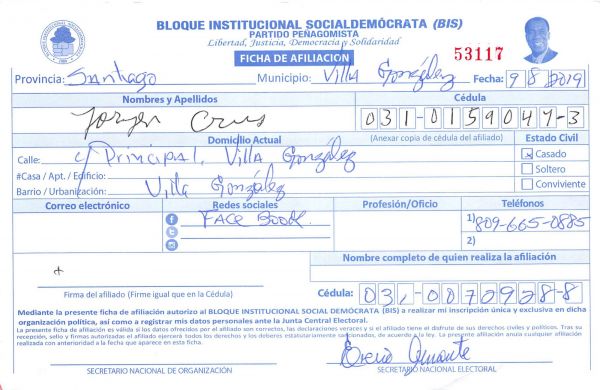 BLOQUE INSTITUCIONAL SOCIALDEMÓCRATA (BIS)
PARTIDO PEÑAGOMISTA
Libertad, Justicia, Democracia y Solidaridad
FICHA DE AFILIACIÓN
53117
Provincia: Santiago Municipio: Villa González Fecha: 9 8 2019
Nombres y Apellidos Cédula
Cruz 031-0159047-3
Domicilio Actual (Anexar copia de cédula del afiliado) Estado Civil
Calle: c/ Principal, Villa González Casado
#Casa / Apt. / Edificio: Soltero
Barrio / Urbanización: Villa González Conviviente
Correo electrónico Redes sociales Profesión/Oficio Teléfonos
FACE BOOK. 1) 809-665-0885
2)
Nombre completo de quien realiza la afiliación
Firma del afiliado (Firme igual que en la Cédula) Cédula: 031-0072928-8
Mediante la presente ficha de afiliación autorizo al BLOQUE INSTITUCIONAL SOCIAL DEMÓCRATA (BIS) a realizar mi inscripción única y exclusiva en dicha
organización política, así como a registrar mis datos personales ante la Junta Central Electoral.
La presente ficha de afiliación es válida si los datos ofrecidos por el afiliado son correctos, las declaraciones veraces y si el afiliado tiene el disfrute de sus derechos civiles y políticos. Tras su
recepción, sello y firmas autorizadas el afiliado ejercerá todos los derechos y deberes estatutariamente sancionados, de acuerdo a la ley. La presente afiliación anula cualquier afiliación
realizada con anterioridad a la fecha que aparece en esta ficha.
SECRETARIO NACIONAL DE ORGANIZACIÓN SECRETARIO NACIONAL ELECTORAL